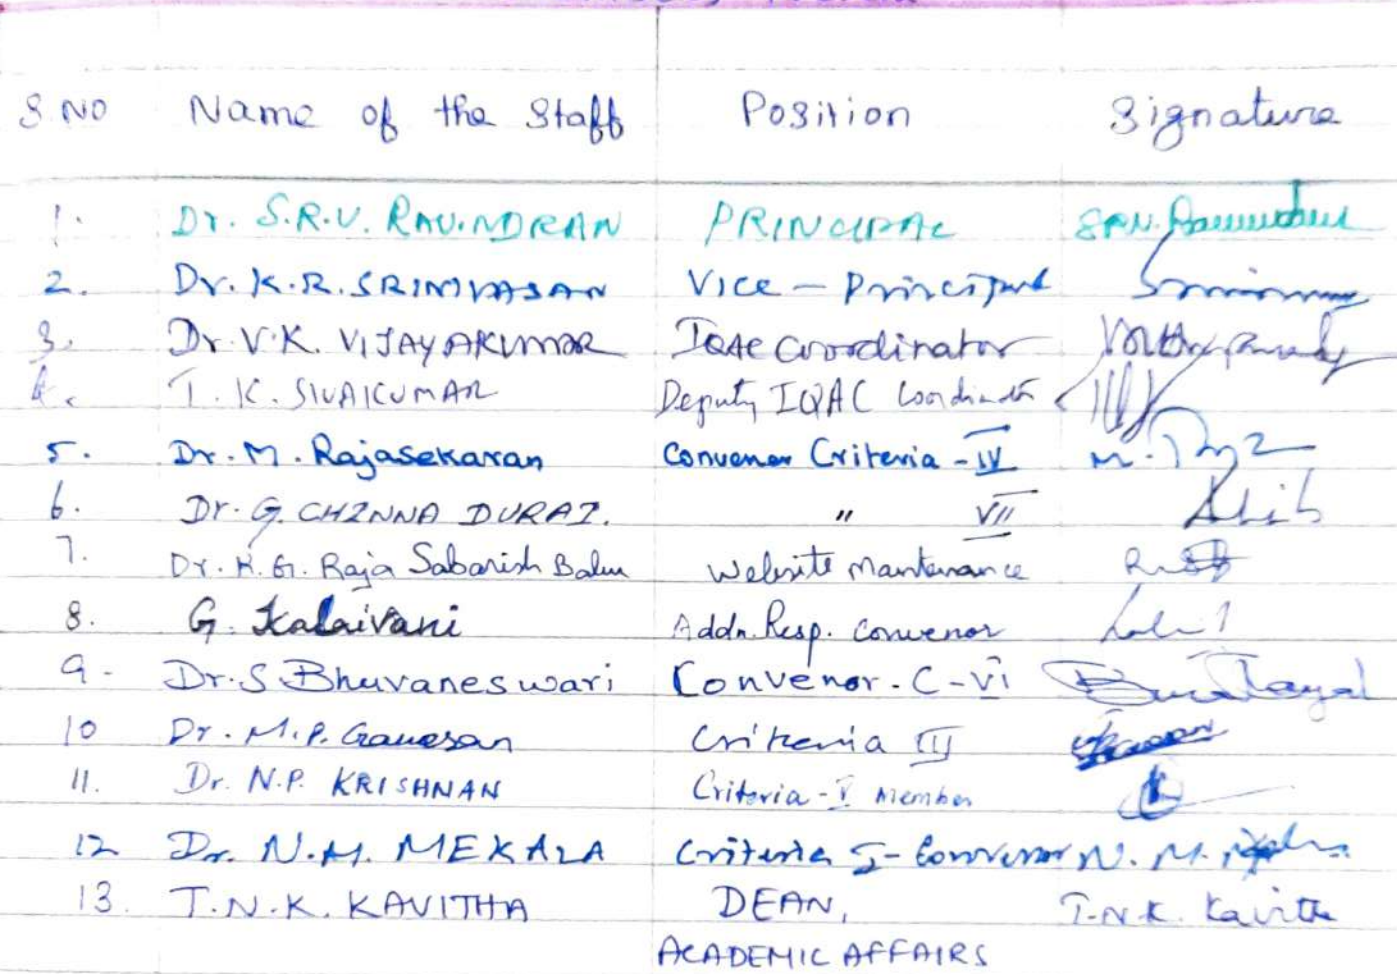 S.NO Name of the Staff Position Signature
1. Dr. S.R.V. RAVINDRAN PRINCIPAL SRV.
2. Dr. K.R. SRINIVASAN Vice - Principal
3. Dr V.K. VIJAYAKUMAR IQAC Coordinator
4. T. K. SIVAKUMAR Deputy IQAC Coordinator
5. Dr. M. Rajasekaran Convenor Criteria - IV M.
6. Dr. G. CHINNA DURAI. " VII
7. Dr. K.G. Raja Sabarish Babu Website Maintenance
8. G. Kalaivani Addn. Resp. Convenor
9. Dr. S Bhuvaneswari Convenor - C - VI
10 Dr. M.P. Ganesan Criteria III
11. Dr. N.P. KRISHNAN Criteria - V Member
12 Dr. N.M. MEKALA Criteria I - Convenor N. M.
13. T.N.K. KAVITHA DEAN, T.N.K. Kavitha
ACADEMIC AFFAIRS